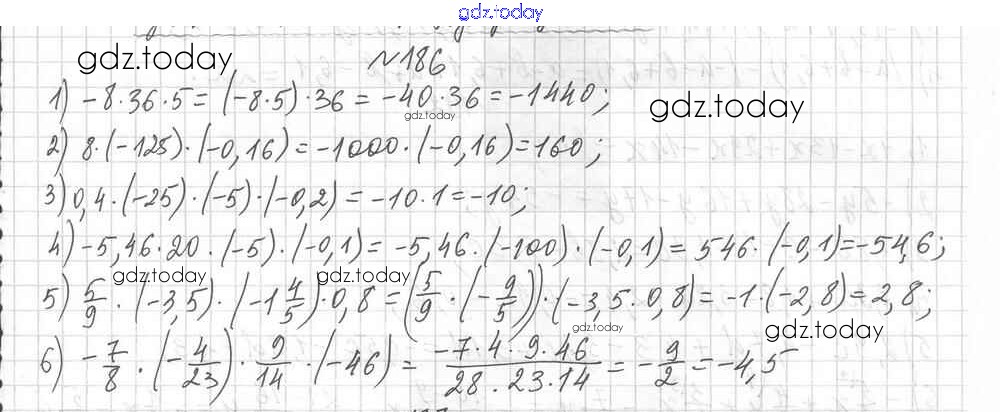 gdz.today
gdz.today
№186
1) -8·36·5 = (-8·5)·36 = -40·36 = -1440;
gdz.today
gdz.today
2) 8·(-125)·(-0,16) = -1000·(-0,16) = 160;
3) 0,4·(-25)·(-5)·(-0,2) = -10·1 = -10;
4) -5,46·20·(-5)·(-0,1) = -5,46·(-100)·(-0,1) = 546·(-0,1) = -54,6;
gdz.today gdz.today
5) 5/9·(-3,5)·(-1 4/5)·0,8 = (5/9·(-9/5))·(-3,5·0,8) = -1·(-2,8) = 2,8;
gdz.today
gdz.today
6) -7/8·(-4/23)·9/14·(-46) = -7·4·9·46/28·23·14 = -9/2 = -4,5